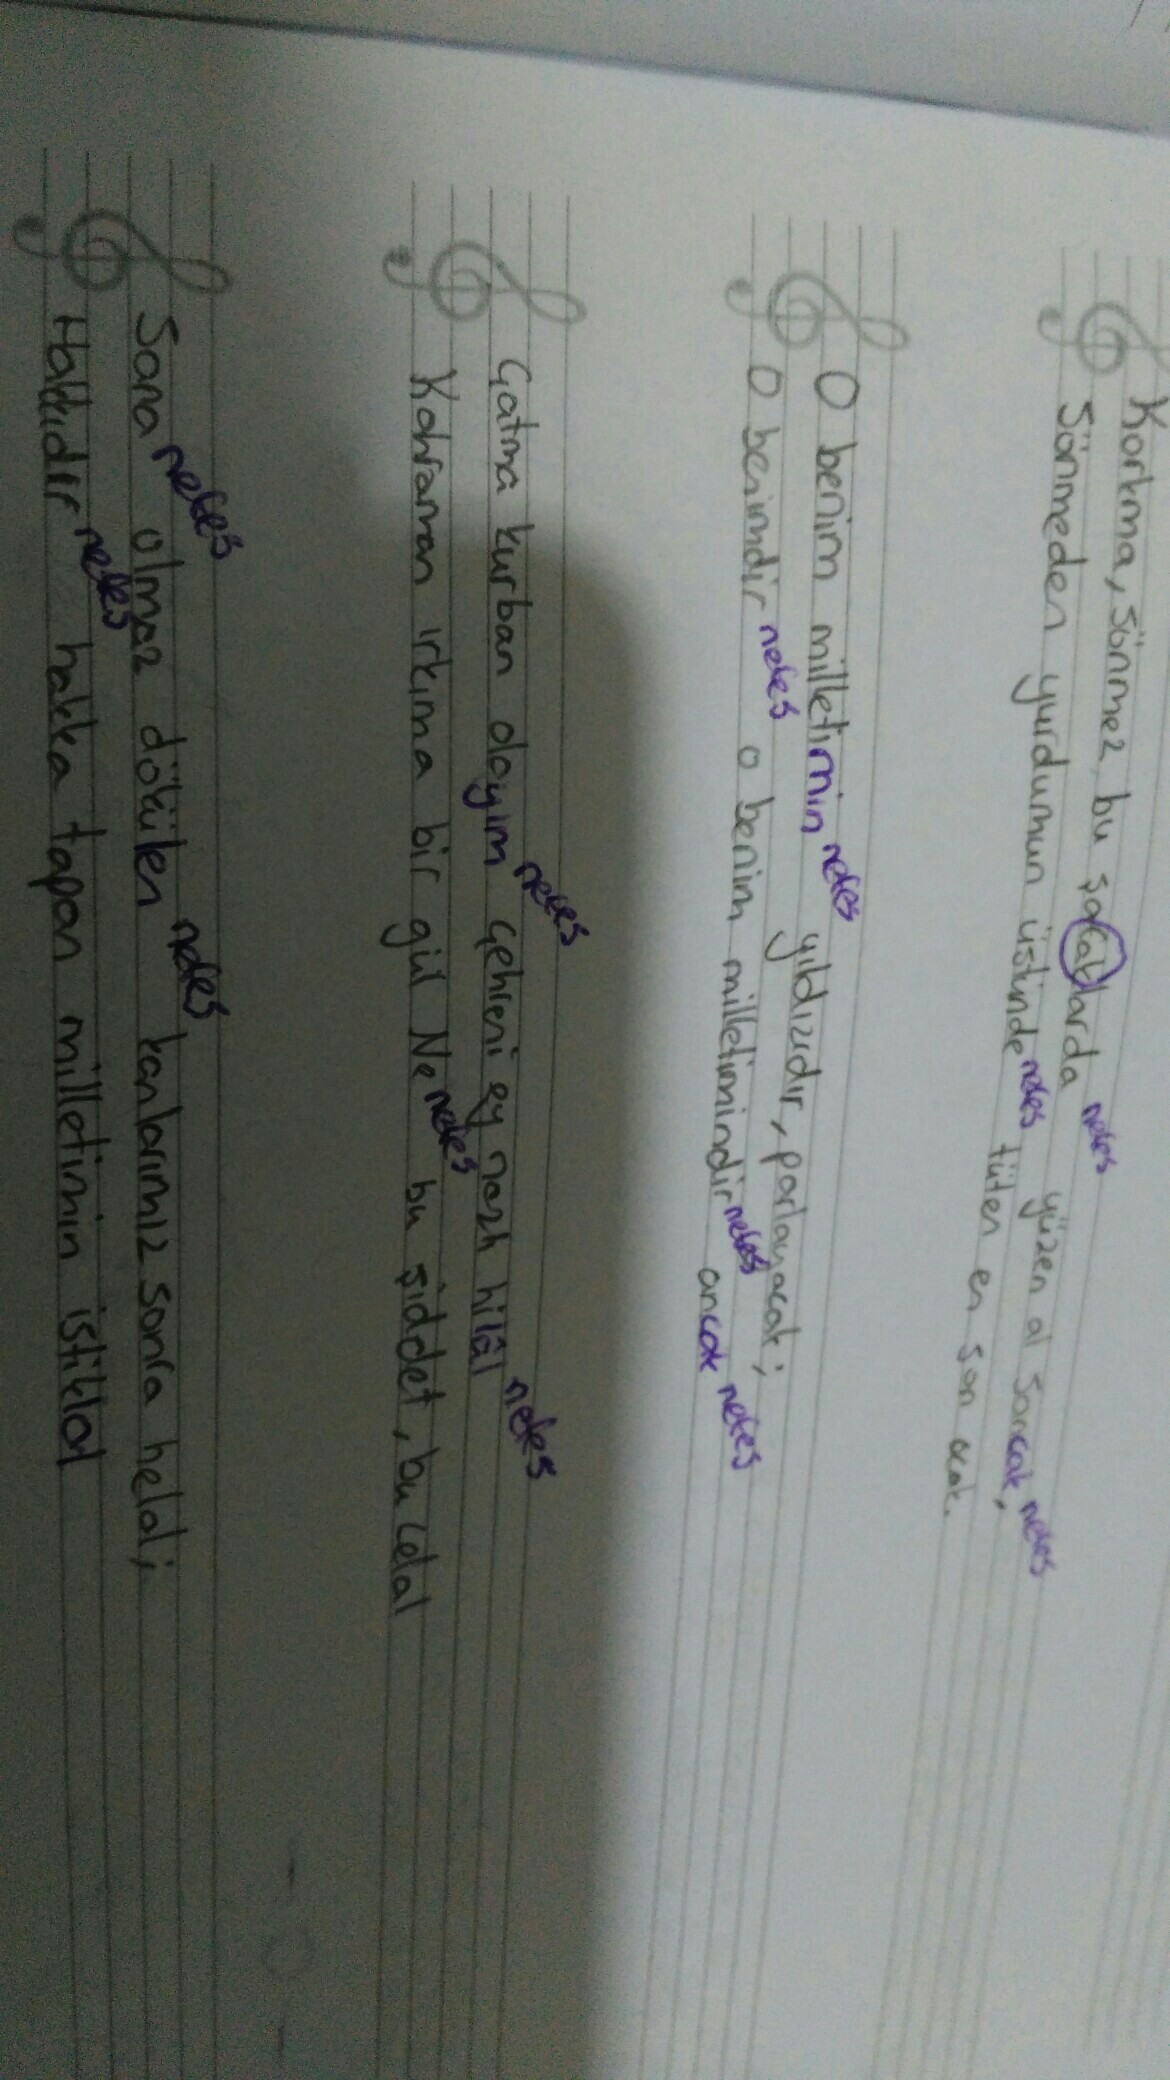 Korkma, sönmez bu şafaklarda nefes yüzen al sancak, nefes
Sönmeden yurdumun üstünde nefes tüten en son ocak.
O benim milletimin nefes yıldızıdır, parlayacak;
O benimdir nefes o benim milletimindir nefes ancak nefes
Çatma kurban olayım nefes çehreni ey nazlı hilâl nefes
Kahraman ırkıma bir gül Ne nefes bu şiddet, bu celal
Sana nefes olmaz dökülen nefes kanlarımız sonra helal;
Hakkıdır nefes hakka tapan milletimin istiklal